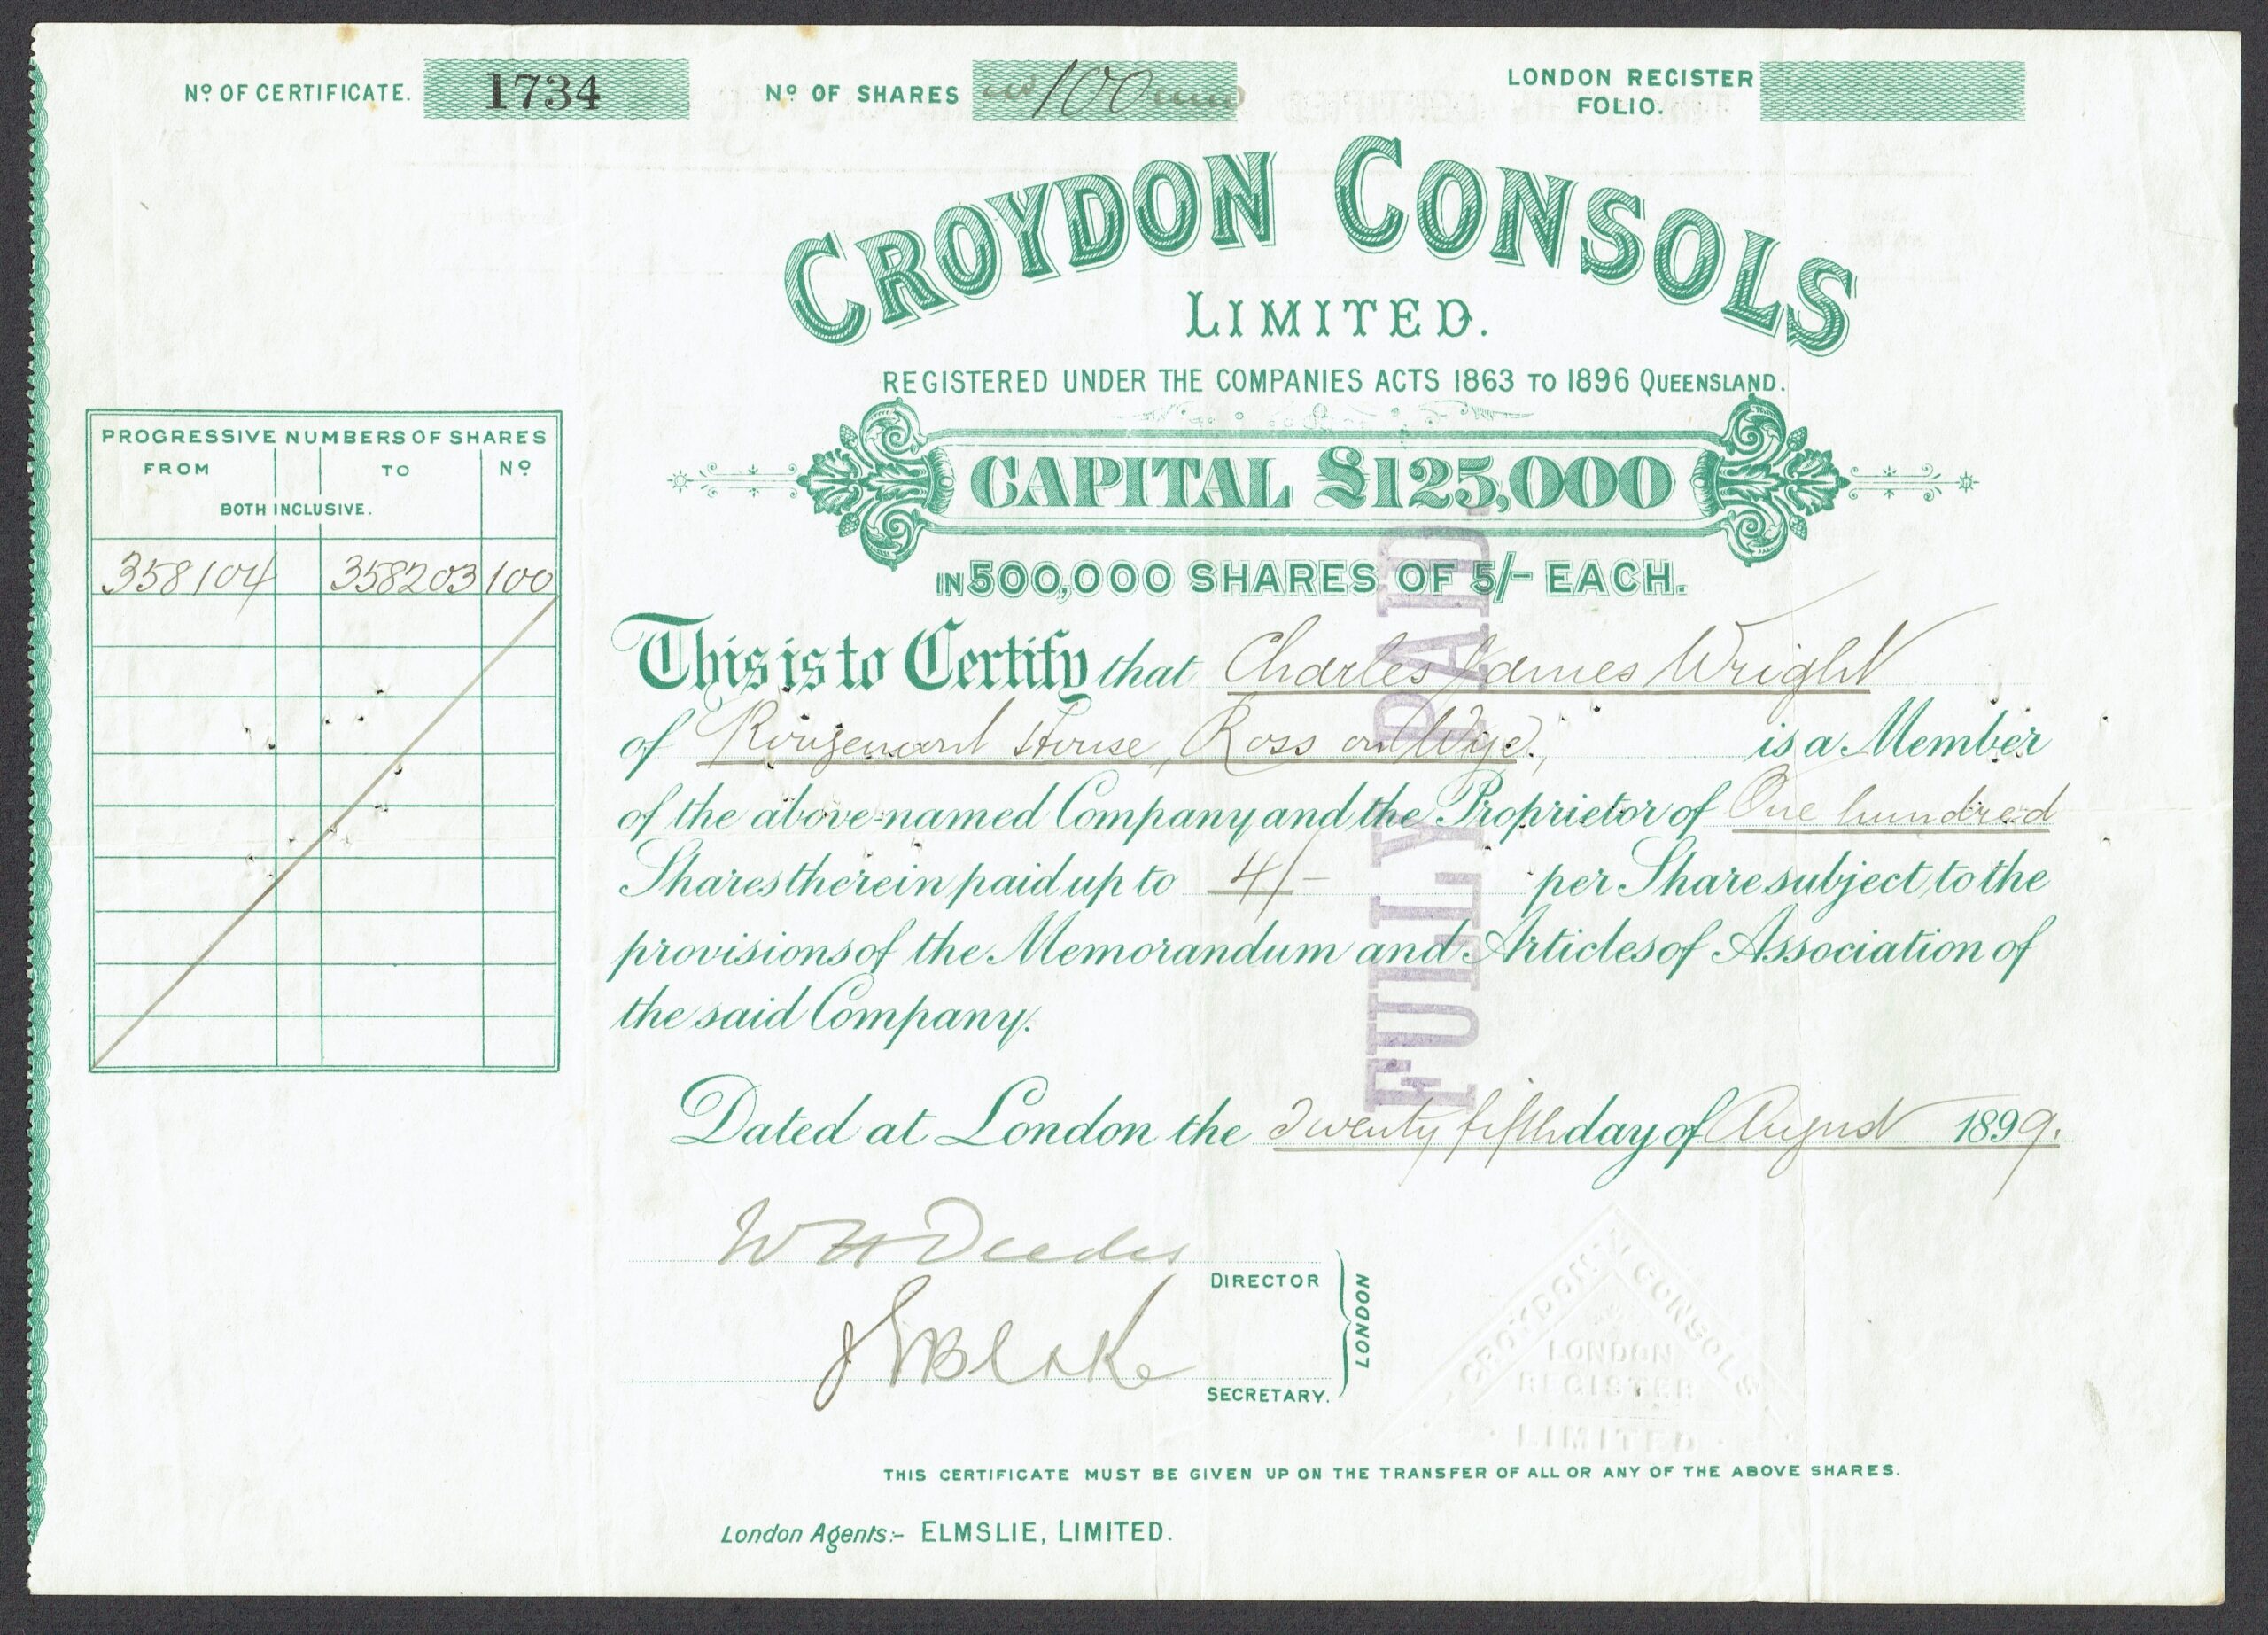 Nº OF CERTIFICATE. 1734
Nº OF SHARES 100
LONDON REGISTER
FOLIO.
CROYDON CONSOLS
LIMITED.
REGISTERED UNDER THE COMPANIES ACTS 1863 TO 1896 QUEENSLAND.
CAPITAL £125,000
IN 500,000 SHARES OF 5/- EACH.
PROGRESSIVE NUMBERS OF SHARES
FROM TO Nº
BOTH INCLUSIVE.
358104 358203 100
This is to Certify that Charles James Wright
of Rougemont House, Ross on Wye, is a Member
of the above-named Company and the Proprietor of One hundred
Shares therein paid up to 4/- per Share subject to the
provisions of the Memorandum and Articles of Association of
the said Company.
FULLY PAID.
Dated at London the Twenty fifth day of August 1899.
W H Deedes
DIRECTOR
Blake
SECRETARY.
LONDON
CROYDON CONSOLS
LONDON
REGISTER
LIMITED
THIS CERTIFICATE MUST BE GIVEN UP ON THE TRANSFER OF ALL OR ANY OF THE ABOVE SHARES.
London Agents:- ELMSLIE, LIMITED.